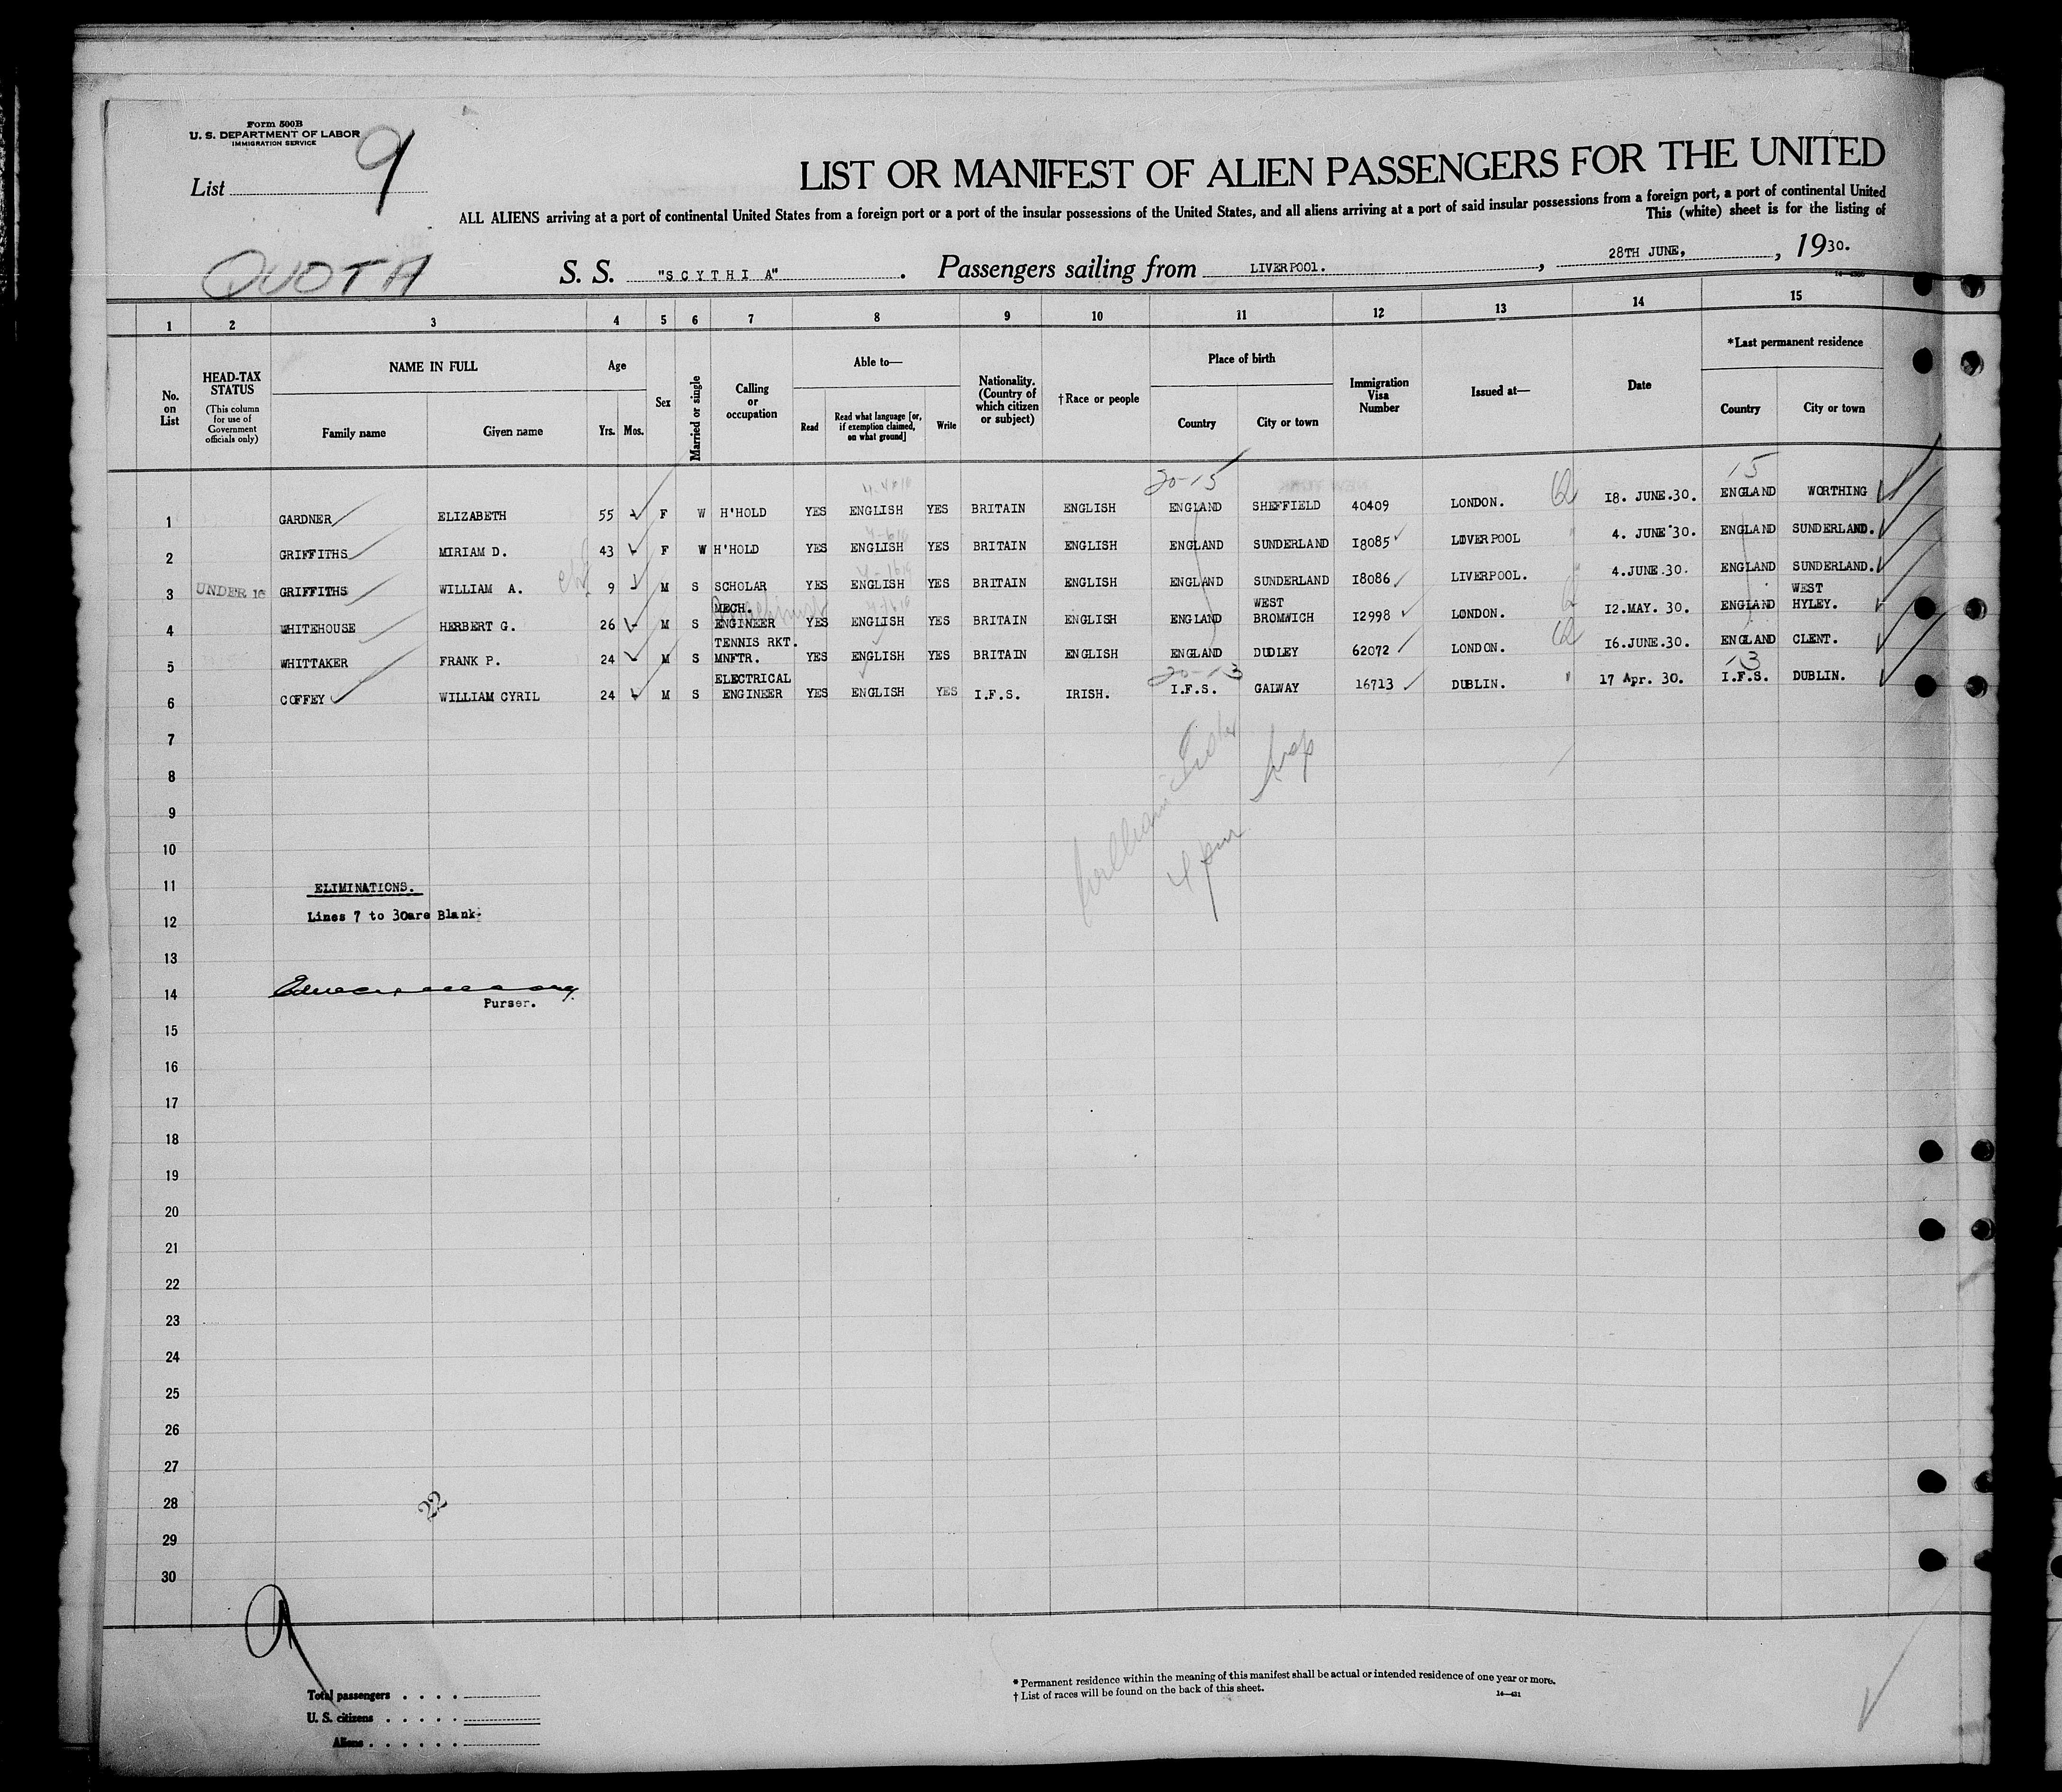 Form 500B
U. S. DEPARTMENT OF LABOR
IMMIGRATION SERVICE
List 9
LIST OR MANIFEST OF ALIEN PASSENGERS FOR THE UNITED
ALL ALIENS arriving at a port of continental United States from a foreign port or a port of the insular possessions of the United States, and all aliens arriving at a port of said insular possessions from a foreign port, a port of continental United
This (white) sheet is for the listing of
QUOTA
S. S. "SCYTHIA" . Passengers sailing from LIVERPOOl. , 28TH JUNE, , 1930.
1 2 3 4 5 6 7 8 9 10 11 12 13 14 15
No. on List
HEAD-TAX STATUS
(This column for use of Government officials only)
NAME IN FULL
Family name Given name
Age
Yrs. Mos.
Sex
Married or single
Calling or occupation
Able to—
Read
Read what language [or, if exemption claimed, on what ground]
Write
Nationality. (Country of which citizen or subject)
†Race or people
Place of birth
Country City or town
Immigration Visa Number
Issued at—
Date
*Last permanent residence
Country City or town
20-15 15
1 GARDNER ELIZABETH 55 F W H'HOLD YES ENGLISH YES BRITAIN ENGLISH ENGLAND SHEFFIELD 40409 LONDON. 18. JUNE.30. ENGLAND WORTHING
2 GRIFFITHS MIRIAM D. 43 F W H'HOLD YES ENGLISH YES BRITAIN ENGLISH ENGLAND SUNDERLAND I8085 LIVERPOOL 4. JUNE 30. ENGLAND SUNDERLAND.
3 UNDER 16 GRIFFITHS WILLIAM A. 9 M S SCHOLAR YES ENGLISH YES BRITAIN ENGLISH ENGLAND SUNDERLAND I8086 LIVERPOOL. 4.JUNE.30. ENGLAND SUNDERLAND.
4 WHITEHOUSE HERBERT G. 26 M S MECH. ENGINEER YES ENGLISH YES BRITAIN ENGLISH ENGLAND WEST BROMWICH I2998 LONDON. 12.MAY. 30. ENGLAND WEST HYLEY.
5 WHITTAKER FRANK P. 24 M S TENNIS RKT. MNFTR. YES ENGLISH YES BRITAIN ENGLISH ENGLAND DUDLEY 62072 LONDON. 16.JUNE.30. ENGLAND CLENT.
20-13 13
6 COFFEY WILLIAM CYRIL 24 M S ELECTRICAL ENGINEER YES ENGLISH YES I.F.S. IRISH. I.F.S. GALWAY 16713 DUBLIN. 17 Apr. 30. I.F.S. DUBLIN.
7
8
9
10
11 ELIMINATIONS.
12 Lines 7 to 30are Blank.
13
14
Purser.
15
16
17
18
19
20
21
22
23
24
25
26
27
28 22
29
30
Total passengers . . . .
U. S. citizens . . . . .
Aliens . . . . . .
* Permanent residence within the meaning of this manifest shall be actual or intended residence of one year or more.
† List of races will be found on the back of this sheet.